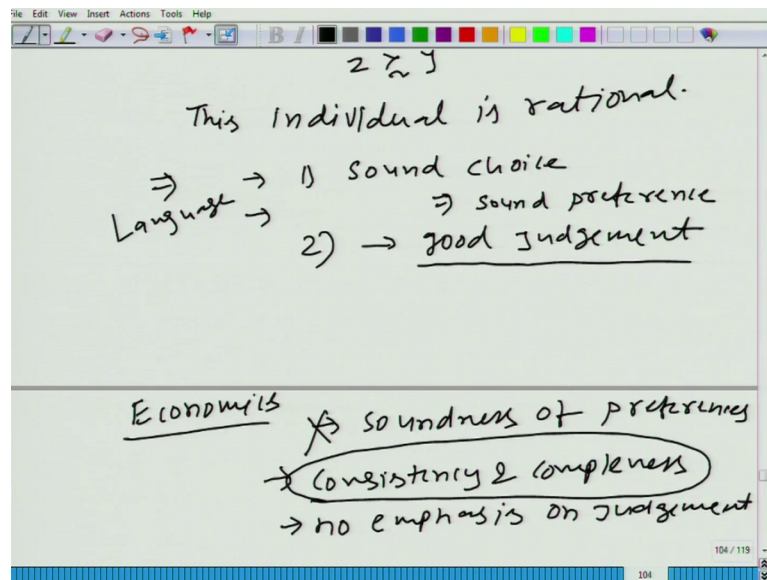 ile Edit View Insert Actions Tools Help
B I
z ≿ y
This individual is rational.
⇒ → 1) sound choice
Language → ⇒ sound preference
2) → good judgement
Economics → soundness of preferences
→ consistency & compleness
→ no emphasis on judgement
104 / 119
104